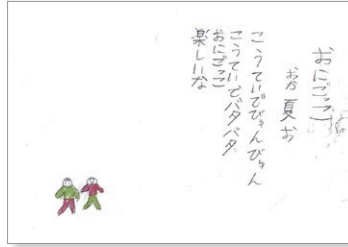 おにごっこ
おか 夏お
こうていでびゅんびゅん
こうていでバタバタ
おにごっこ
楽しいな